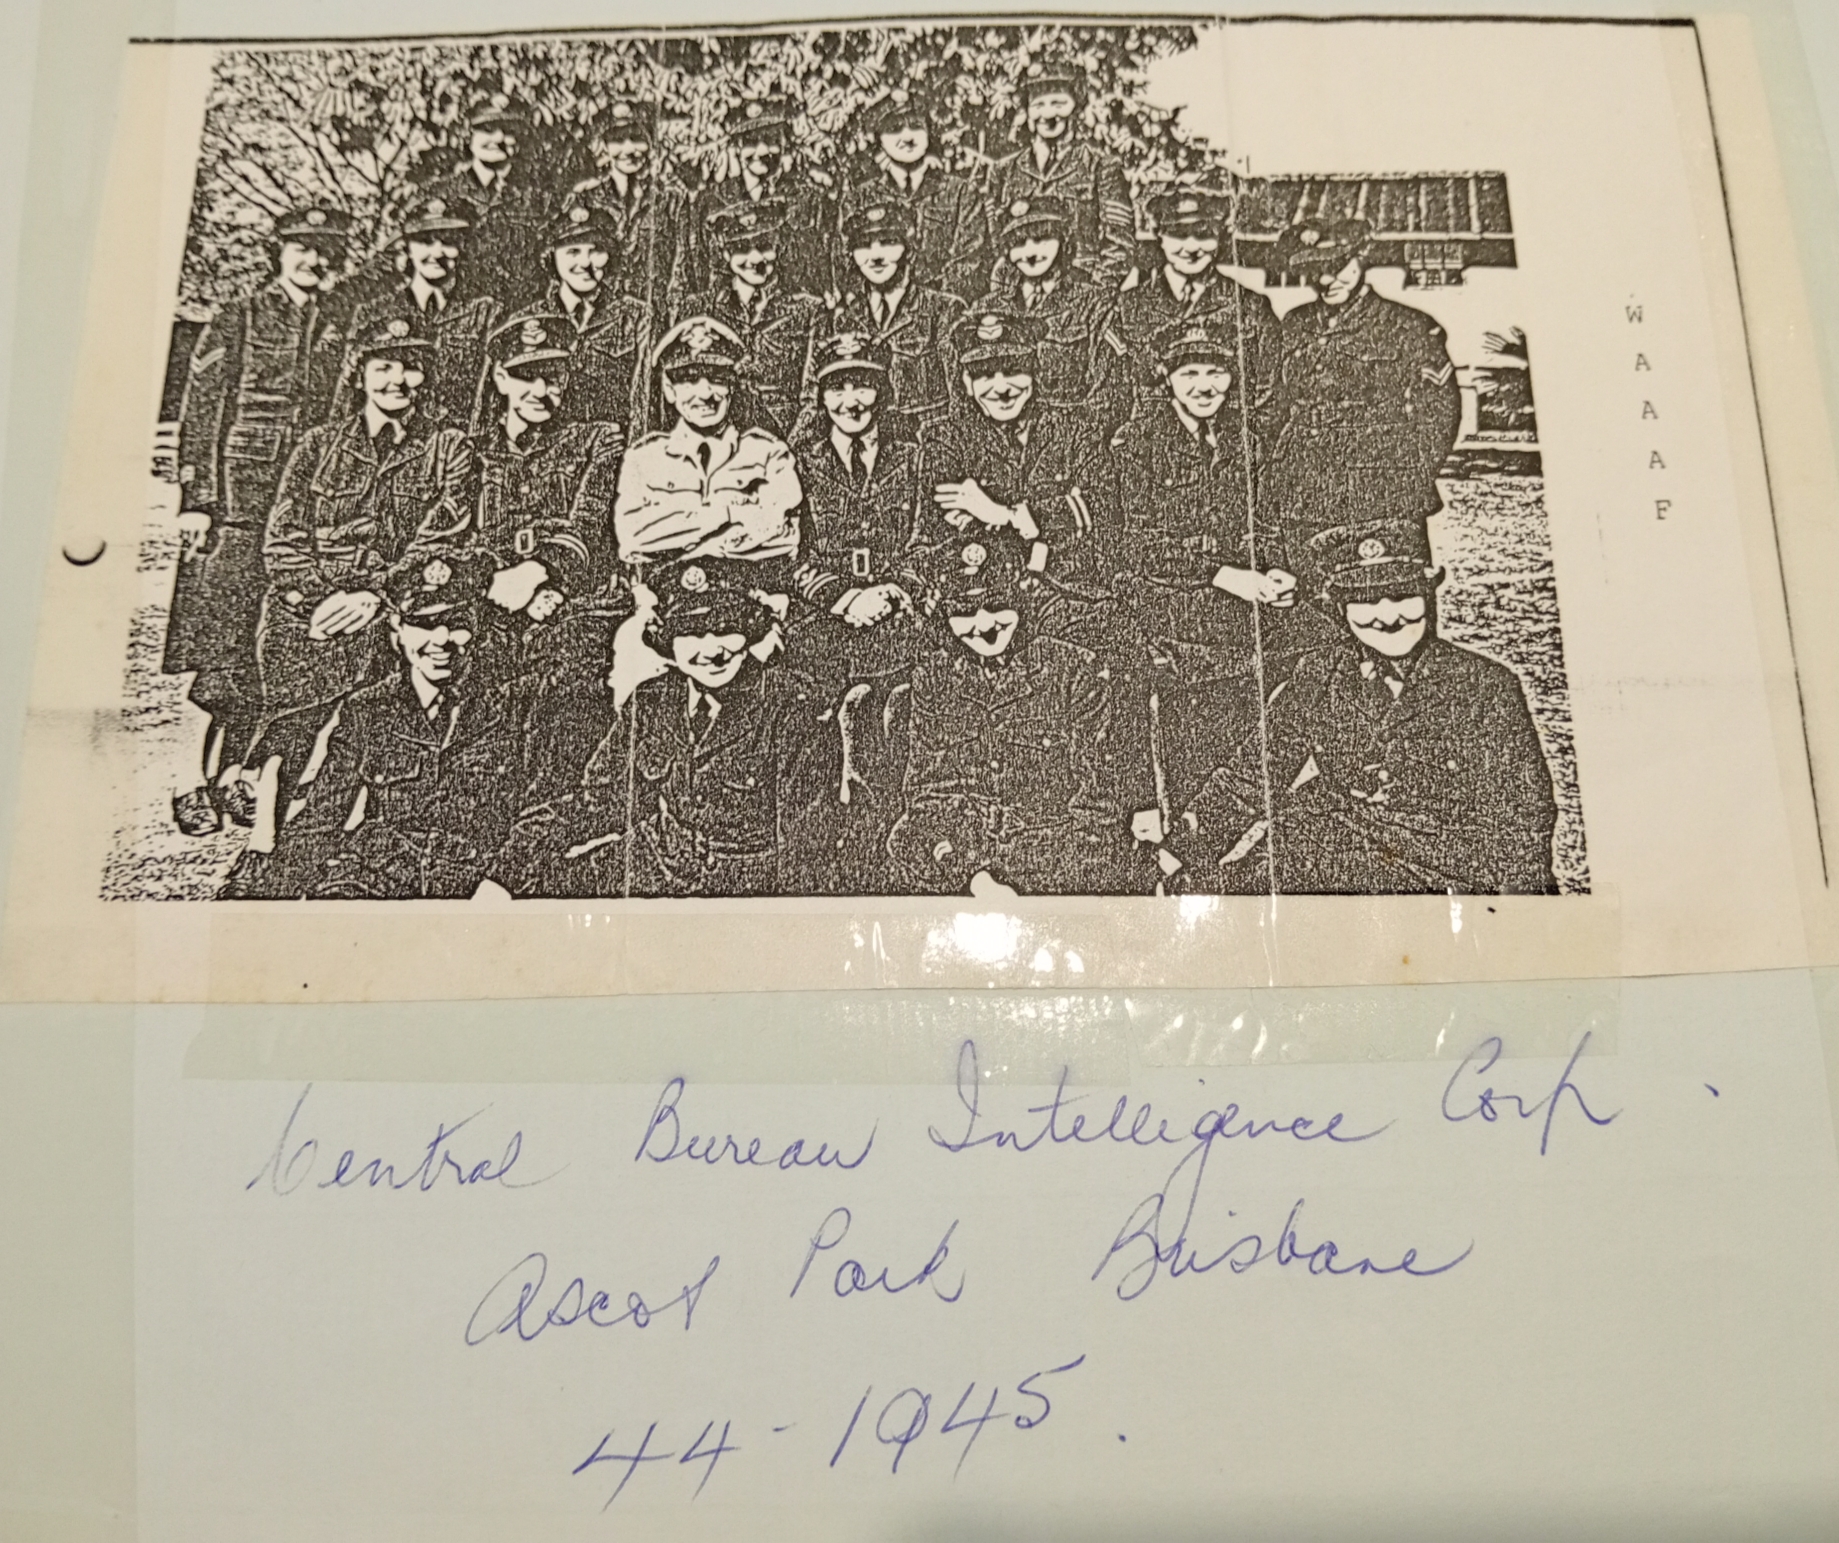 W
A
A
A
F
Central Bureau Intelligence Corp.
Ascot Park Brisbane
44-1945.